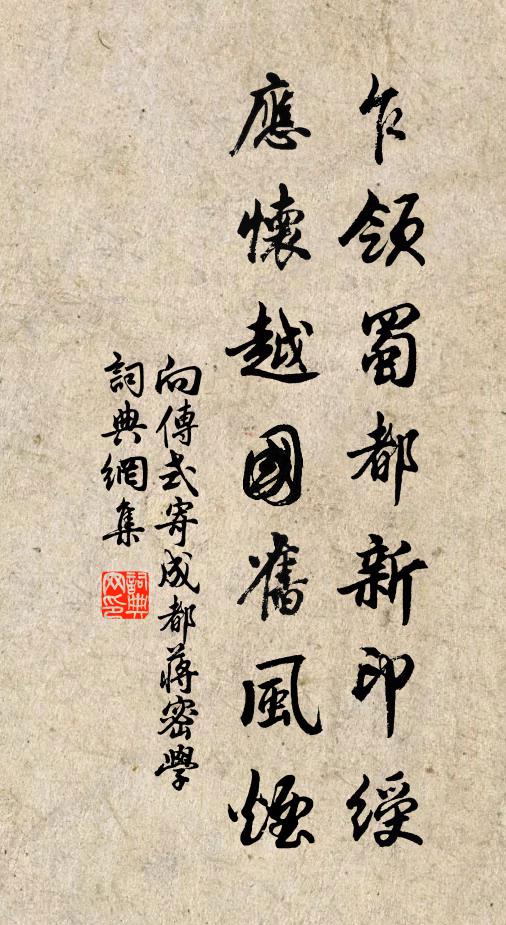 乍領蜀都新印綬
應懷越國舊風煙
向傳式寄成都蔣密學
詞典網集
詞典网印